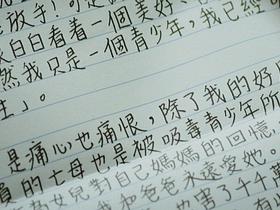 放手
白白看着一個美好
然我只是一個青少年，我已經
生」。
是痛心也痛恨，除了我的好
的七母也是被吸毒青少年所
為女兒對自己媽媽的回憶
我和爸爸永遠愛她。
害了千千萬